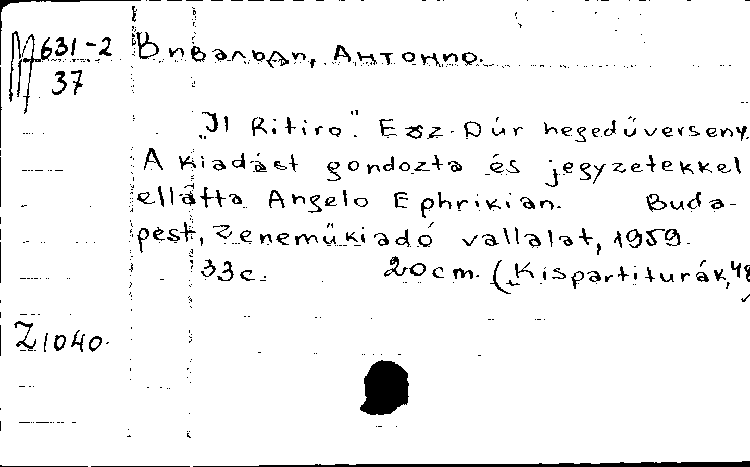 М631-2
37
Вивальди, Антонио.
„Il Ritiro". Esz-Dúr hegedűverseny.
A kiadást gondozta és jegyzetekkel
ellátta Angelo Ephrikian. Buda-
pest, Zeneműkiadó vallalat, 1959.
33c. 20cm. („Kispartiturák," 48)
Z1040.